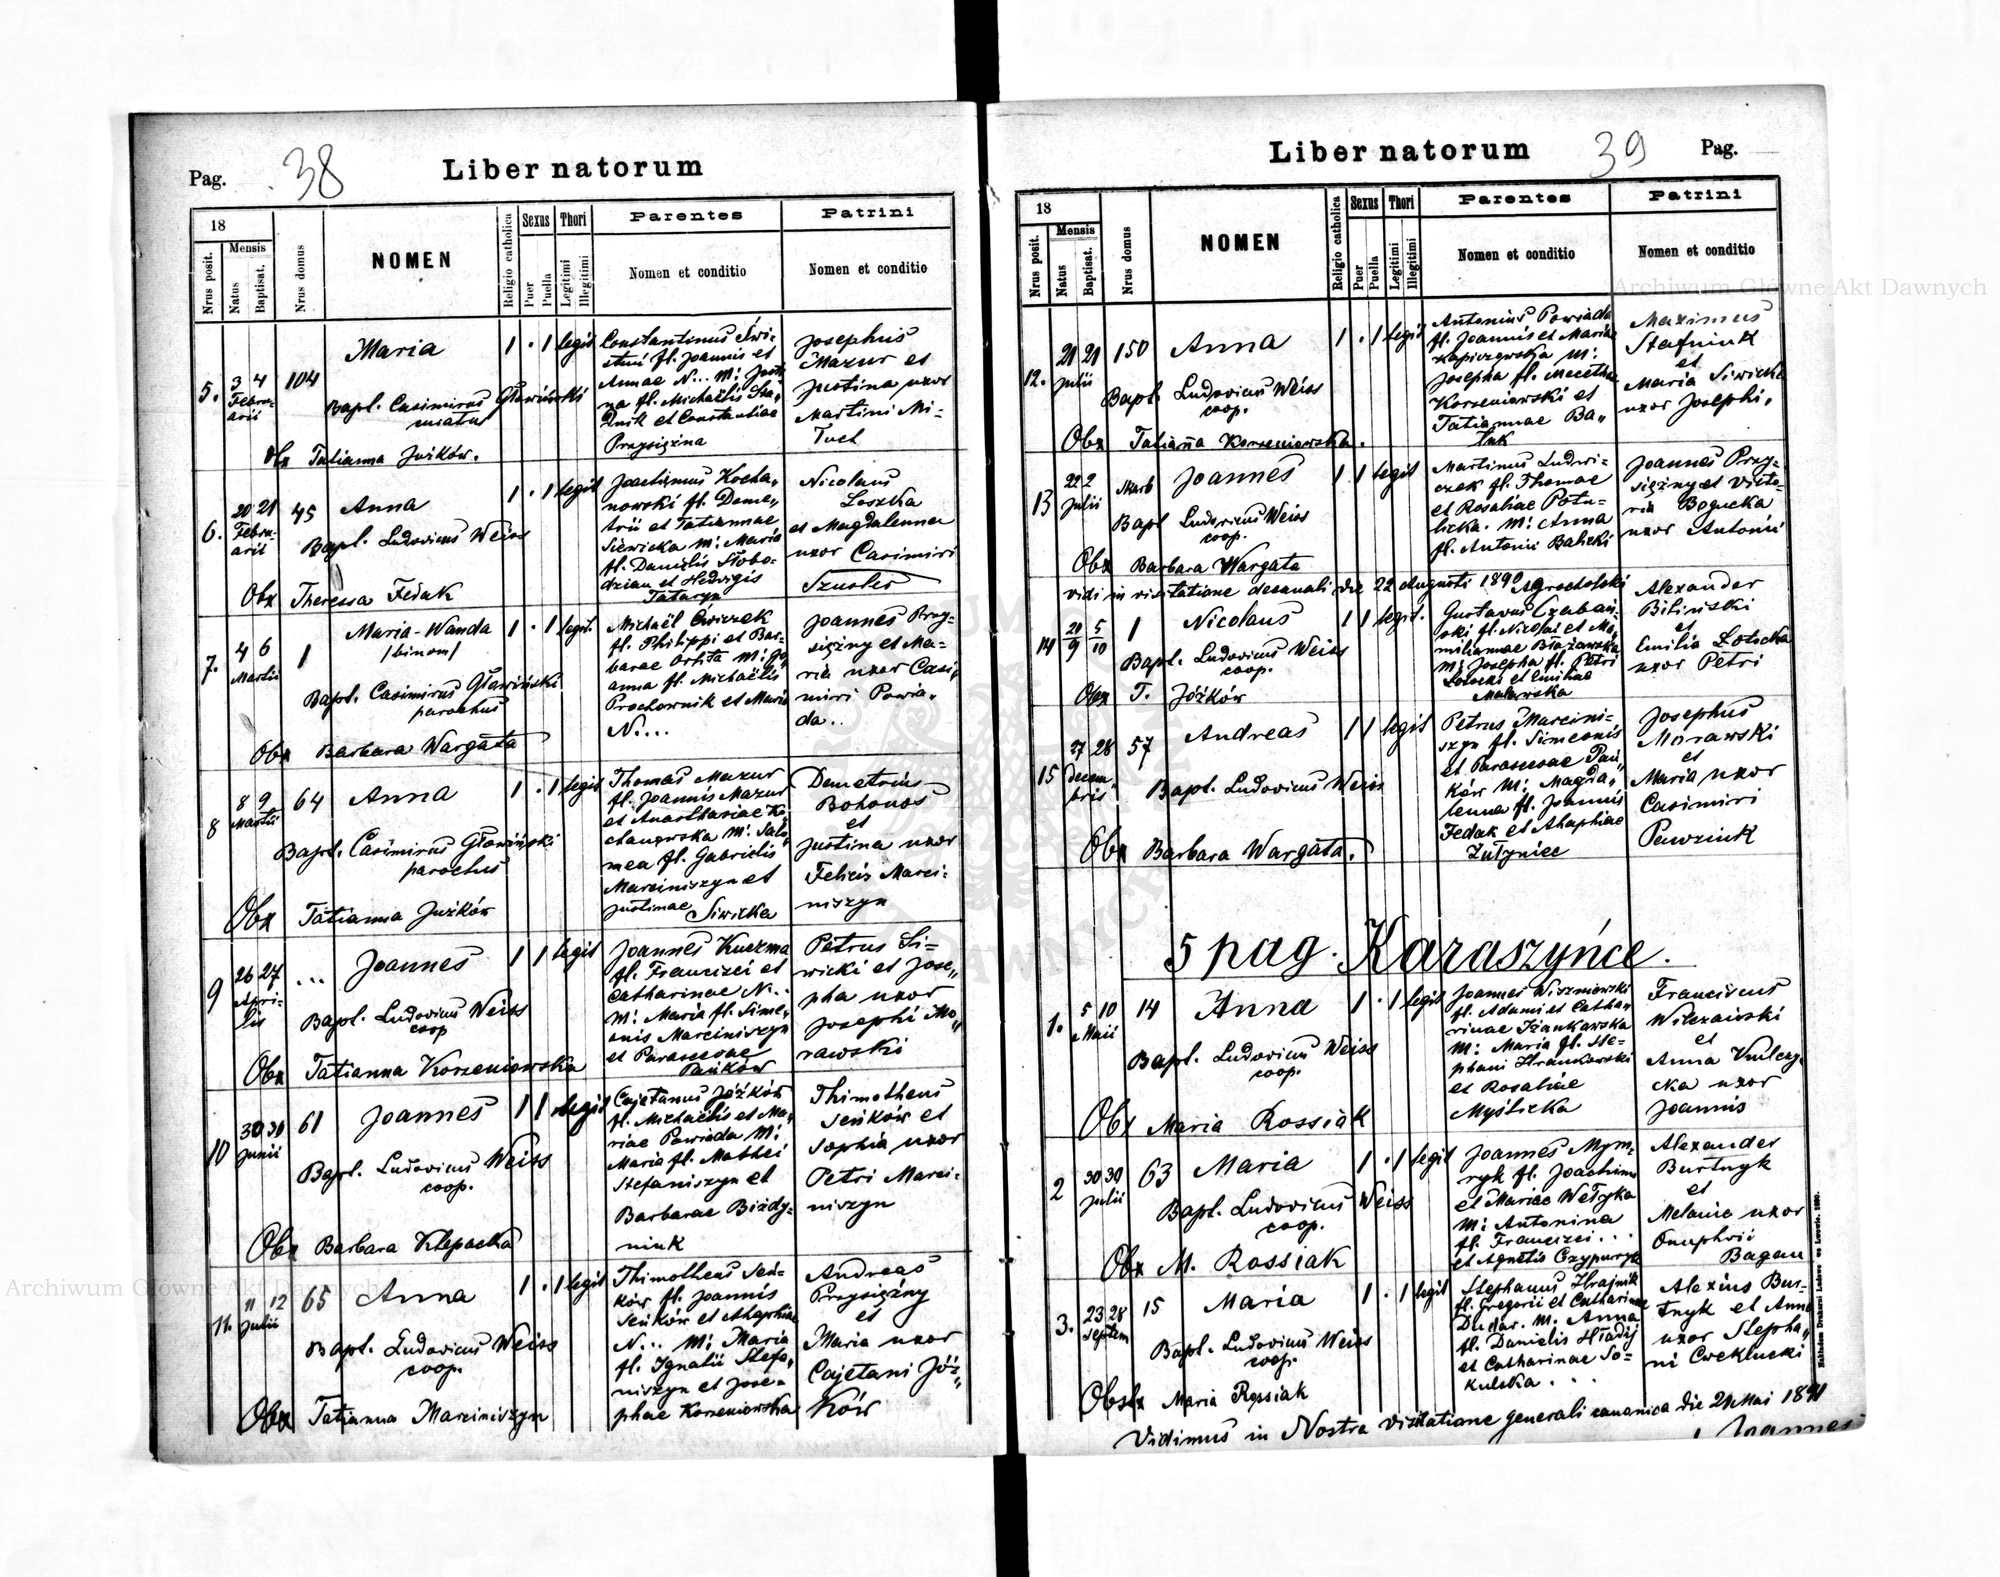 Pag. 38
Liber natorum
18
Nrus posit.
Mensis
Natus
Baptisat.
Nrus domus
NOMEN
Religio catholica
Sexus
Puer
Puella
Thori
Legitimi
Illegitimi
Parentes
Nomen et conditio
Patrini
Nomen et conditio
5.
3 4
Febru-
arii
104
Maria
1 . 1 legit
Bapt. Casimirus Głowiński
Obx Tatianna Jużków.
Constantinus Świ-
fl. Joannis et
Annae N... M: Justi
na fl. Michaëlis
et Constantiae
Przysiężna
Josephus
Mazur et
Justina uxor
Martini Mi-
6.
20 21
Febru-
arii
45
Anna
1 . 1 legit
Bapt. Ludovicus Weiss
Obx Theressa Fedak
Joachimus Kocha-
nowski fl. Deme-
trii et Tatiannae
Siewicka M: Maria
fl. Danielis Słobo-
dzian et Hedvigis
Tataryn
Nicolaus
Loszka
et Magdalenna
uxor Casimiri
Szuster
7.
4 6
Martii
1
Maria-Wanda
/binom/
1 . 1 legit.
Bapt. Casimirus Głowiński
parochus
Obx Barbara Wargata
Michaël Ćwiczek
fl. Philippi et Bar-
barae Orlita M: Jo
anna fl. Michaëlis
Prochownik et Maria
N...
Joannes Przy-
siężny et Ma-
ria uxor Casi,
miri Powia-
da..
8
8 9
Martii
64
Anna
1 . 1 legit
Bapt. Casimirus Głowiński
parochus
Obx Tatianna Jużków
Thomas Mazur
fl. Joannis Mazur
et Anasthasiae Ko-
chanowska M: Salo-
mea fl. Gabrielis
Marciniszyn et
Justinae Siwicka
Demetrius
Bohonos
et
Justina uxor
Felicis Marci-
niszyn
9
26 27
Apri-
lis
...
Joannes
1 1 legit
Bapt. Ludovicus Weiss
coop
Obx Tatianna Korzeniowska
Joannes Kuczma
fl. Francisci et
Catharinae N..
M: Maria fl. Sime-
onis Marciniszyn
et Parascevae
Pańków
Petrus Si-
wicki et Jose,,
pha uxor
Josephi Mo,,
rawski
10
30 30
Junii
61
Joannes
1 1 legit
Bapt. Ludovicus Weiss
coop.
Obx Barbara Klepacka
Cajetanus Jóżków
fl. Michaëlis et Ma-
riae Powiada M:
Maria fl. Mathei
Stefaniszyn et
Barbarae Bizdy-
niuk
Thimotheus
Seńków et
Sophia uxor
Petri Marci-
niszyn
11.
11 12
Julii
65
Anna
1 . 1 legit
Bapt. Ludovicus Weiss
coop.
Obx Tatianna Marciniszyn
Thimotheus Seń-
ków fl. Joannis
Seńków et Ahaphiae
N... M: Maria
fl. Ignatii Stefa,
niszyn et Jose-
phae Korzeniowska
Andreas
Przysiężny
et
Maria uxor
Cajetani Józ,,
ków
Liber natorum
39 Pag.
18
Nrus posit.
Mensis
Natus
Baptisat.
Nrus domus
NOMEN
Religio catholica
Sexus
Puer
Puella
Thori
Legitimi
Illegitimi
Parentes
Nomen et conditio
Patrini
Nomen et conditio
12.
21 21
Julii
150
Anna
1 . 1 legit
Bapt. Ludovicus Weiss
coop.
Obx Tatianna Korzeniowska.
Antonius Powiada
fl. Joannis et Mariae
M:
Josepha fl.
Korzeniowski et
Tatiannae Ba,,
Maximus
Stafniuk
et
Maria Siwicka
uxor Josephi.
13
22 2
Julii
Skarb
Joannes
1 1 legit
Bapt Ludovicus Weiss
coop.
Obx Barbara Wargata
Martinus Ludwi-
czek fl. Thomae
et Rosaliae Potu-
licka. M: Anna
fl. Antonii Balicki
Joannes Przy-
siężny et Victo-
ria Bogucka
uxor Antonii
vidi in visitatione decanali die 22 Augusti 1890
14
29 5
9 10
1
Nicolaus
1 1 legit.
Bapt. Ludovicus Weiss
coop.
Obx T. Jóżków
Gustavus Czaban-
ski fl. Nicolai et
Błażowska
M: Josepha fl. Petri
Łotocki et Emiliae
Makowska
Alexander
Biliński
et
Emilia Łotocka
uxor Petri
15
27 28
Decem
bris
57
Andreas
1 1 legit
Bapt. Ludovicus Weiss
Obx Barbara Wargata.
Petrus Marcini-
szyn fl. Simeonis
et Parascevae Pań,,
ków M: Magda,
lenna fl. Joannis
Fedak et Ahaphiae
Żużyniec
Josephus
Morawski
et
Maria uxor
Casimiri
Pawziuk
5 pag. Karaszyńce.
1.
5 10
Maii
14
Anna
1 . 1 legit
Bapt. Ludovicus Weiss
coop.
Obx Maria Rossiak
Joannes Wiszniowski
fl. Adami et Catha,,
rinae
M: Maria fl. Ste-
phani Hrankowski
et Rosaliae
Myślicka
Franciscus
Wilczaiwski
et
Anna
cka uxor
Joannis
2
30 30
Julii
63
Maria
1 . 1 legit
Bapt. Ludovicus Weiss
coop.
Obx M. Rossiak
Joannes Mym-
ryk fl. Joachimi
et Mariae Wełyka
M: Antonina
fl. Francisci...
et Agnetis Czypuryk
Alexander
Burtnyk
et
Melania uxor
Onuphrii
Bagan
3.
23 28
Septem
15
Maria
1 . 1 legit
Bapt. Ludovicus Weiss
coop.
Obstx Maria Rossiak
Stephanus Hrajnik
fl. Gregorii et Catharinae
Dudar. M. Anna
fl. Danielis Hładij
et Catharinae So-
kulska...
Alexius Bur-
tnyk et Anna
uxor Stepha,,
ni Cweklucki
Vidimus in Nostra visitatione generali canonica die 21 Mai 1891
Joannes
Nakładem Drukarni Ludowej we Lwowie. 1890.
Archiwum Główne Akt Dawnych
Archiwum Główne Akt Dawnych